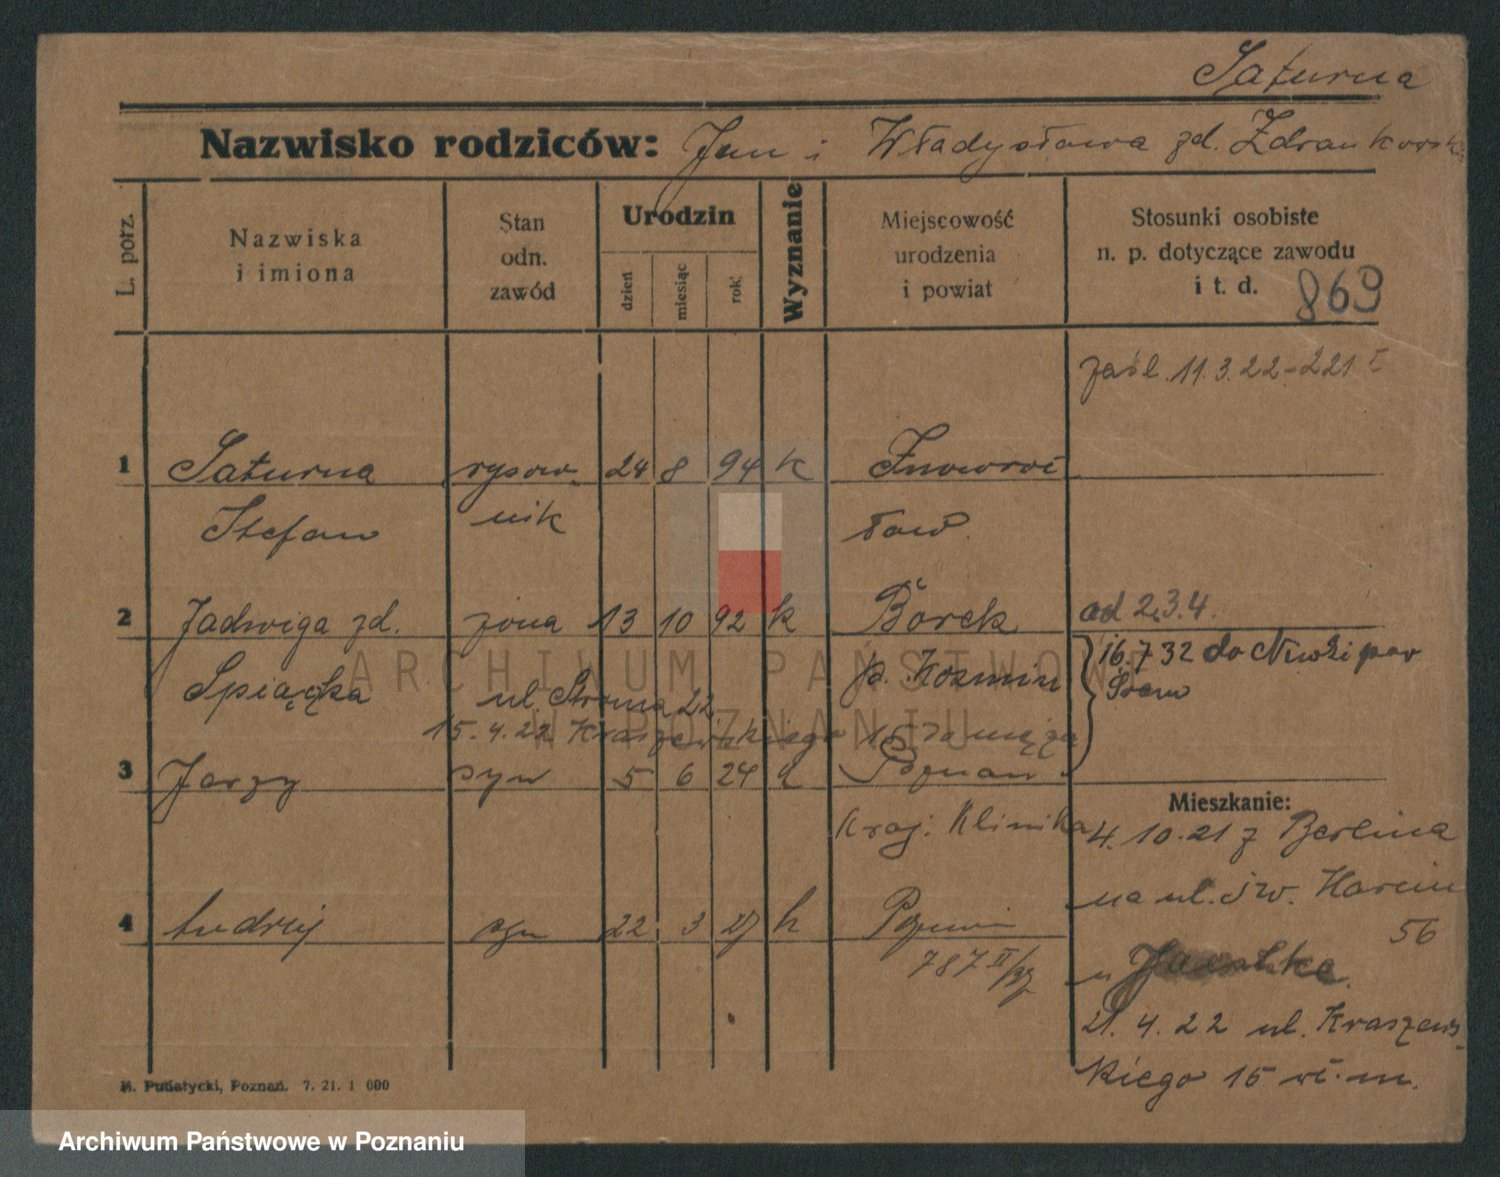 Saturna
Nazwisko rodziców: Jan i Władysława zd. Zdrankowska
L. porz.
Nazwiska
i imiona
Stan
odn.
zawód
Urodzin
dzień
miesiąc
rok
Wyznanie
Miejscowość
urodzenia
i powiat
Stosunki osobiste
n. p. dotyczące zawodu
i t. d.
869
zaśl. 11.3.22-221
1 Saturna rysow- 24 8 94 k Inowroc
Stefan nik ław.
2 Jadwiga zd. żona 13 10 92 k Borek ad 2.3.4.
Spiączka p. Koźmin
16.7.32 do pow
Śrem
ul. Stroma 22
15.4.22 Kraszewskiego 15 za męża
3 Jerzy syn 5 6 24 k Poznań
Kraj. Klinika
4 Andrzej syn 22 3 27 k Poznań
787 II/27
Mieszkanie:
4.10.21 z Berlina
na ul. św. Marcin
56
u
21.4.22 ul. Kraszews-
kiego 15 wł. m.
M. Putiatycki, Poznań. 7. 21. 1 000
ARCHIWUM PAŃSTWOWE
W POZNANIU
Archiwum Państwowe w Poznaniu